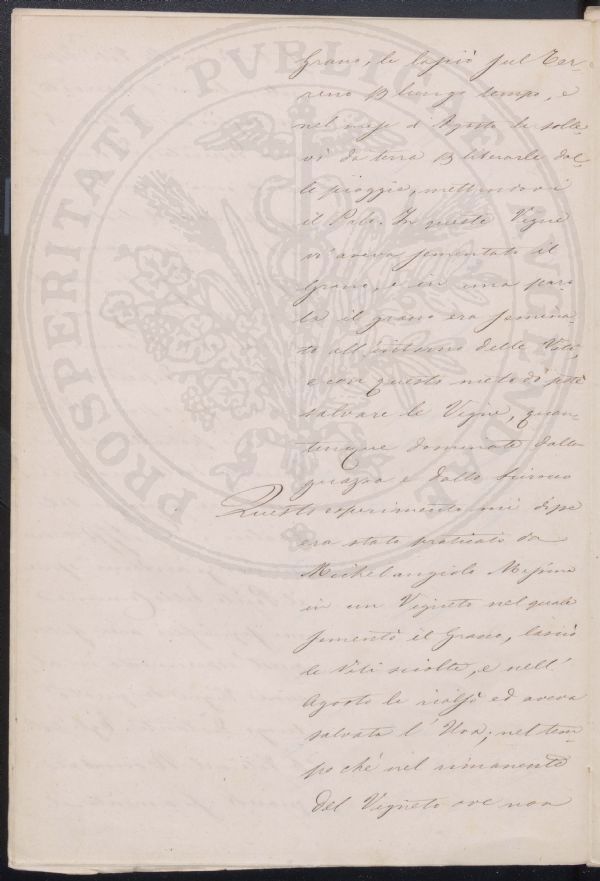 PROSPERITATI PVBLICAE AVGENDAE
Grano, le lasciò sul Ter-
reno p lungo tempo, e
nel mese d'Agosto le solle-
vò da terra p liberarle dal-
le pioggie, mettendovi
il Palo. In queste Vigne
vi aveva sementato il
Grano, e in una paro-
la il grano era semina-
to all'intorno delle Viti,
e con questo metodo potè
salvare le Vigne, quan-
tunque dominate dalla
guazza e dallo Sirocco
Questo esperimento mi disse
era stato praticato da
Michelangiolo
in un Vigneto nel quale
sementò il Grano, lasciò
le Viti sciolte, e nell'
Agosto le rialzò ed aveva
salvata l'Uva; nel tem-
po chè nel rimanente
del Vigneto ove non